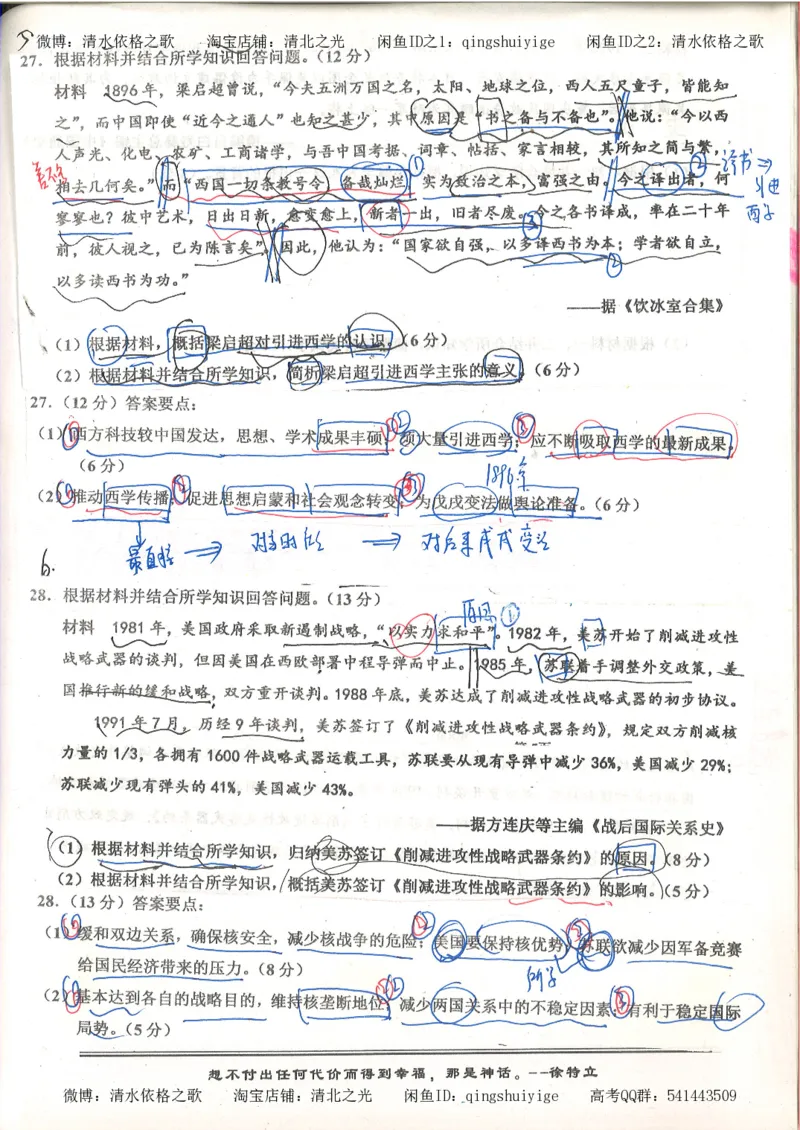 微博：清水依格之歌 淘宝店铺：清北之光 闲鱼ID之1：qingshuiyige 闲鱼ID之2：清水依格之歌
27．根据材料并结合所学知识回答问题。（12 分）
材料 1896 年，梁启超曾说，“今夫五洲万国之名，太阳、地球之位，西人五尺童子，皆能知
之”，而中国即使“近今之通人”也知之甚少，其中原因是“书之备与不备也”。他说：“今以西
人声光、化电、农矿、工商诸学，与吾中国考据、词章、帖括、家言相较，其所知之简与繁，
相去几何矣。”而“西国一切条教号令，备哉灿烂，实为致治之本，富强之由。今之译出者，何
寥寥也？彼中艺术，日出日新，愈变愈上，新者一出，旧者尽废。今之各书译成，率在二十年
前，彼人视之，已为陈言矣”。因此，他认为：“国家欲自强，以多译西书为本；学者欲自立，
以多读西书为功。”
——据《饮冰室合集》
① ② 译书⇒
引进
西学
③
②
（1）根据材料，概括梁启超对引进西学的认识。（6 分）
（2）根据材料并结合所学知识，简析梁启超引进西学主张的意义。（6 分）
27．（12 分）答案要点：
（1）西方科技较中国发达，思想、学术成果丰硕；须大量引进西学；应不断吸取西学的最新成果。
（6 分）
1896年
（2）推动西学传播；促进思想启蒙和社会观念转变；为戊戌变法做舆论准备。（6 分）
最直接 ⇒ 对当时 ⇒ 对后来戊戌变法
6.
28．根据材料并结合所学知识回答问题。（13 分）
原因①
材料 1981 年，美国政府采取新遏制战略，“以实力求和平”。1982 年，美苏开始了削减进攻性
战略武器的谈判，但因美国在西欧部署中程导弹而中止。1985 年，苏联着手调整外交政策，美
国推行新的缓和战略，双方重开谈判。1988 年底，美苏达成了削减进攻性战略武器的初步协议。
1991 年 7 月，历经 9 年谈判，美苏签订了《削减进攻性战略武器条约》，规定双方削减核
力量的 1/3，各拥有 1600 件战略武器运载工具，苏联要从现有导弹中减少 36%，美国减少 29%；
苏联减少现有弹头的 41%，美国减少 43%。
——据方连庆等主编《战后国际关系史》
（1）根据材料并结合所学知识，归纳美苏签订《削减进攻性战略武器条约》的原因。（8 分）
（2）根据材料并结合所学知识，概括美苏签订《削减进攻性战略武器条约》的影响。（5 分）
28．（13 分）答案要点：
（1）缓和双边关系，确保核安全，减少核战争的危险；美国要保持核优势；苏联欲减少因军备竞赛
给国民经济带来的压力。（8 分）
所学
（2）基本达到各自的战略目的，维持核垄断地位；减少两国关系中的不稳定因素；有利于稳定国际
局势。（5 分）
想不付出任何代价而得到幸福，那是神话。--徐特立
微博：清水依格之歌 淘宝店铺：清北之光 闲鱼ID：qingshuiyige 高考QQ群：541443509